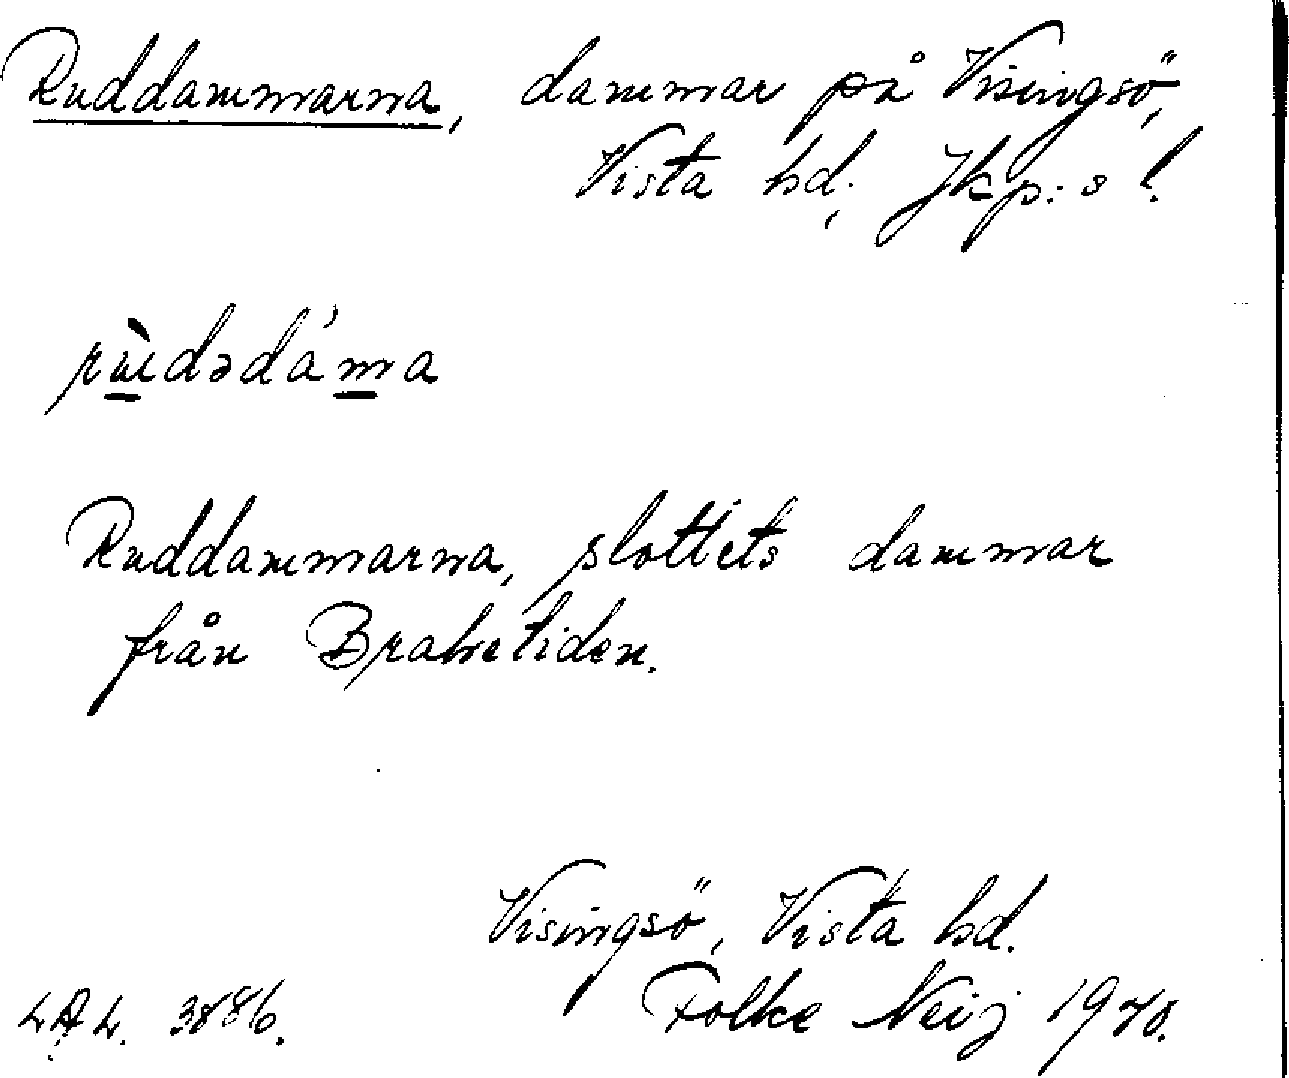 Ruddammarna, dammar på Visingsö,
Vista hd, Jkp:s l.
rùdədáma
Ruddammarna, slottets dammar
från Brahetiden.
Visingsö, Vista hd.
L.A.L. 3886.
Folke Neij 1940.